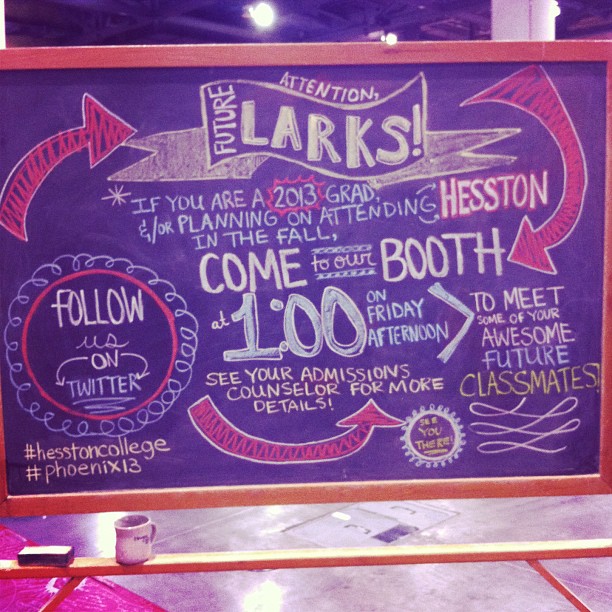 ATTENTION,
FUTURE
LARKS!
*IF YOU ARE A 2013 GRAD,
&/OR PLANNING ON ATTENDING HESSTON
IN THE FALL,
COME to our BOOTH
at 1:00 ON FRIDAY AFTERNOON
TO MEET
SOME OF YOUR
AWESOME
FUTURE
CLASSMATES!
SEE YOUR ADMISSIONS
COUNSELOR FOR MORE
DETAILS!
SEE
YOU
THERE!
FOLLOW
us
ON
TWITTER
#hesstoncollege
#phoenix13